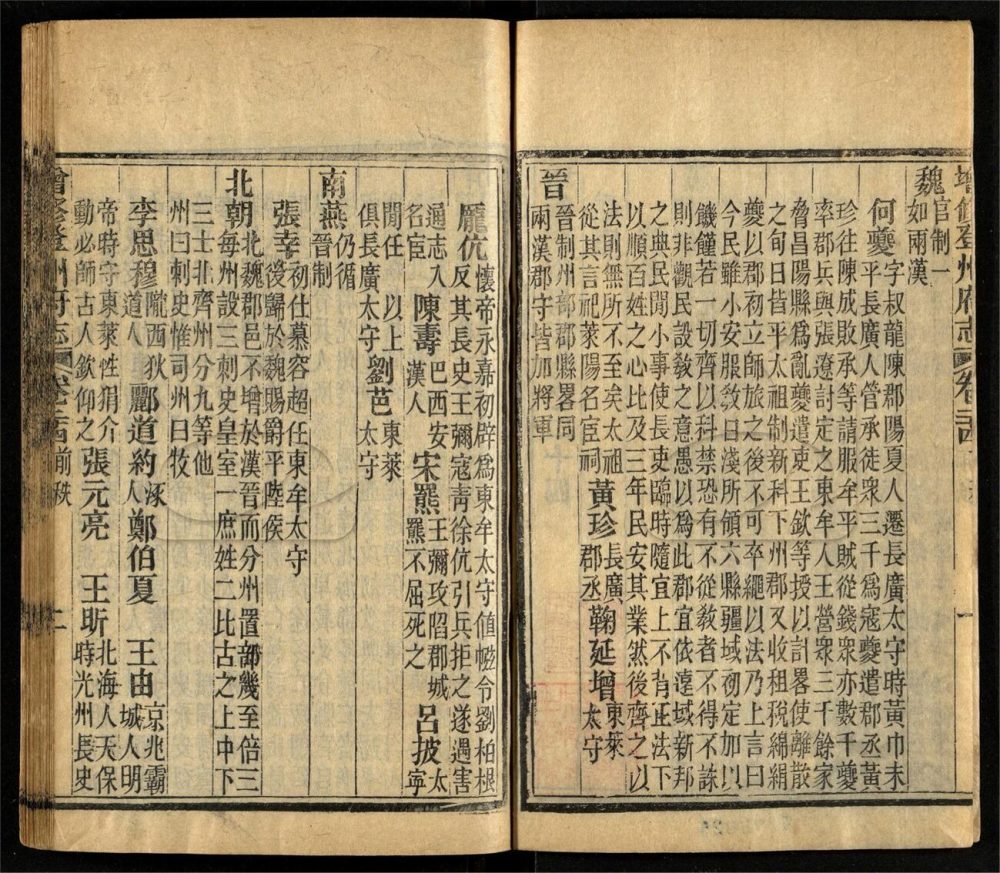 增修登州府志 卷二十四 一
魏官制一
如兩漢
何夔字叔龍陳郡陽夏人遷長廣太守時黃巾未
平長廣人管承徒衆三千爲寇夔遣郡丞黃
珍往陳成敗承等請服牟平賊從錢衆亦數千夔
率郡兵與張遼討定之東牟人王營衆三千餘家
脅昌陽縣爲亂夔遣吏王欽等授以計畧使離散
之旬日皆平太祖制新科下州郡又收租稅綿絹
夔以郡初立師旅之後不可卒繩以法乃上言曰
今民雖小安服敎日淺所領六縣疆域初定加以
饑饉若一切齊以科禁恐有不從敎者不得不誅
則非觀民設敎之意愚以爲此郡宜依遠域新邦
之典民閒小事使長吏臨時隨宜上不背正法下
以順百姓之心比及三年民安其業然後齊之以
法則無所不至矣太祖
從其言祀萊陽名宦祠
黃珍長廣
郡丞
鞠延增東萊
太守
晉晉制州部郡縣畧同
兩漢郡守皆加將軍
龎伉懷帝永嘉初辟爲東牟太守值惤令劉柏根
反其長史王彌寇靑徐伉引兵拒之遂遇害
通志入
名宦
陳壽巴西安
漢人
宋羆王彌攻陷郡城
羆不屈死之
呂披太
寧
閒任
劉芭東萊
太守
以上
俱長廣
太守
南燕仍循
晉制
張幸初仕慕容超任東牟太守
後歸於魏賜爵平陸侯
北朝北魏郡邑不增於漢晉而分州置部幾至倍三
每州設三刺史皇室一庶姓二比古之上中下
三士北齊州分九等他
州曰刺史惟司州曰牧
李思穆隴西狄
道人
酈道約涿
人
鄭伯夏
王由京兆霸
城人明
帝時守東萊性狷介
動必師古人欽仰之
張元亮
王昕北海人天保
時光州長史
前秩
增修登州府志 卷二十四 二